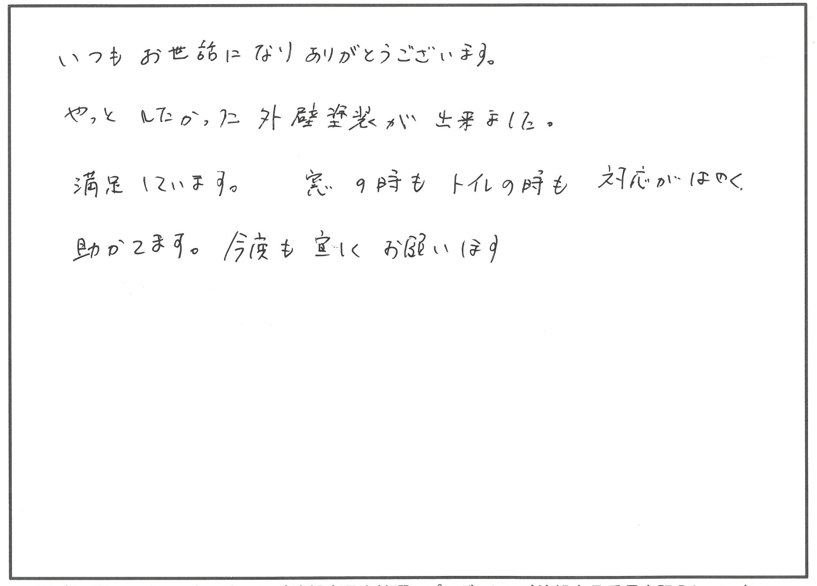 いつもお世話になりありがとうございます。
やっとしたかった外壁塗装が出来ました。
満足しています。 窓の時もトイレの時も対応がはやく
助かてます。今度も宜しくお願いします